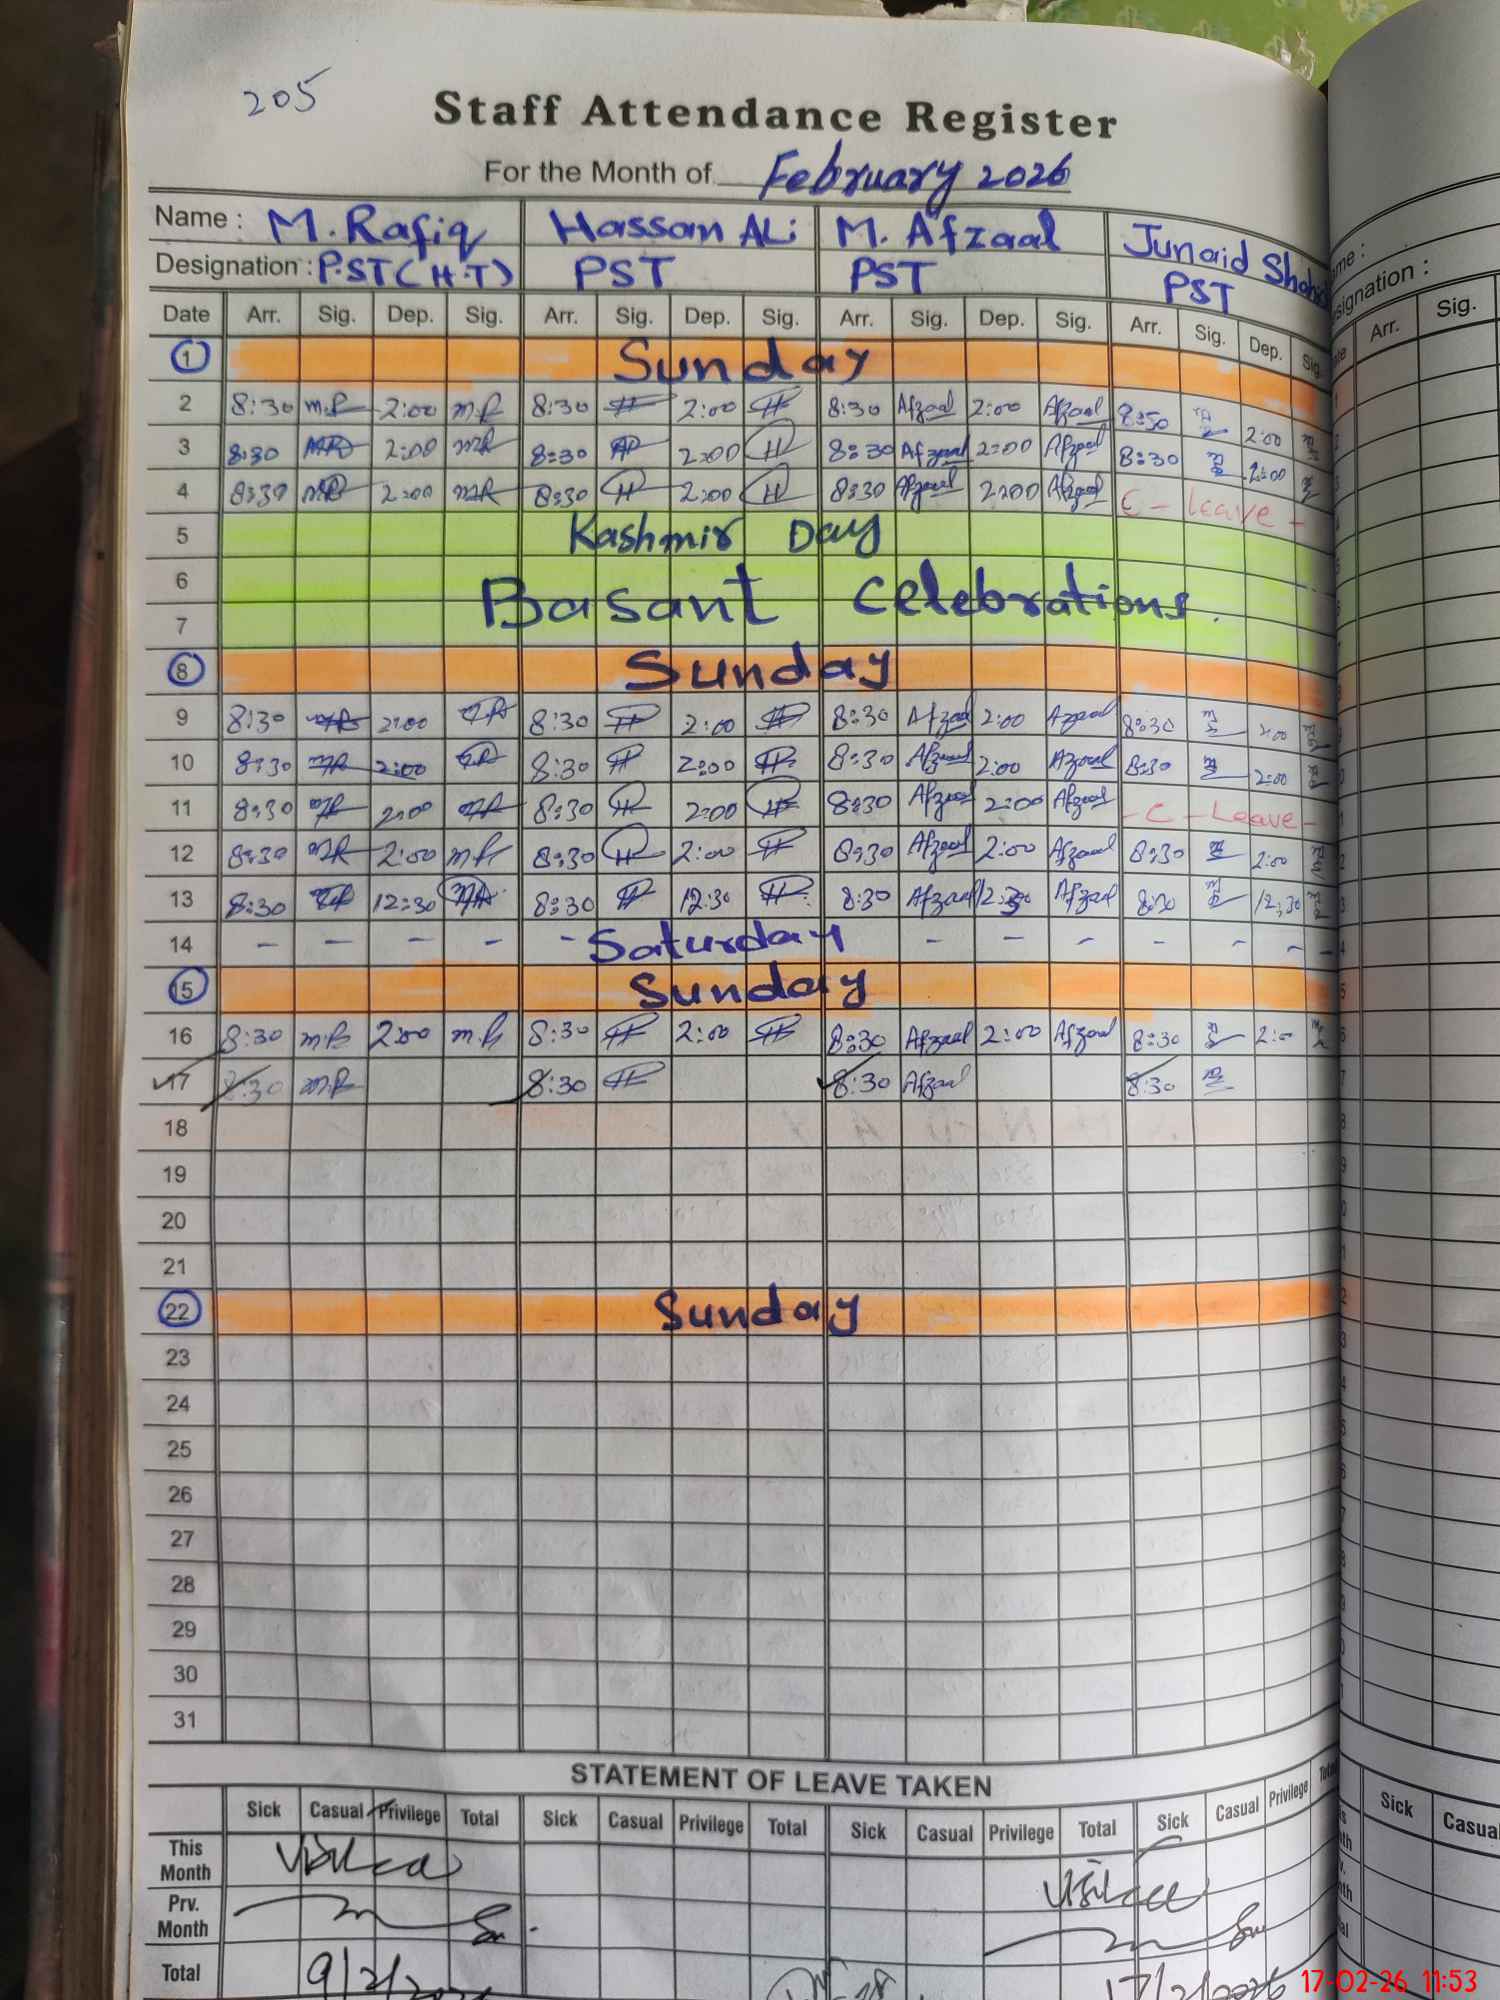 205
Staff Attendance Register
For the Month of February 2026
Name : M. Rafiq Hassan ALi M. Afzaal Junaid
Designation : P.ST (H.T) PST PST PST
Date Arr. Sig. Dep. Sig. Arr. Sig. Dep. Sig. Arr. Sig. Dep. Sig. Arr. Sig. Dep. Sig.
1 Sunday
2 8:30 M.R 2:00 M.R 8:30 H 2:00 H 8:30 Afzaal 2:00 Afzaal 8:30 2:00
3 8:30 MR 2:00 MR 8:30 H 2:00 H 8:30 Afzaal 2:00 Afzaal 8:30 2:00
4 8:30 MR 2:00 MR 8:30 H 2:00 H 8:30 Afzaal 2:00 Afzaal C - Leave -
5 Kashmir Day
6 Basant Celebrations.
7
8 Sunday
9 8:30 MR 2:00 MR 8:30 H 2:00 H 8:30 Afzaal 2:00 Afzaal 8:30 2:00
10 8:30 MR 2:00 MR 8:30 H 2:00 H 8:30 Afzaal 2:00 Afzaal 8:30 2:00
11 8:30 MR 2:00 MR 8:30 H 2:00 H 8:30 Afzaal 2:00 Afzaal - C - Leave -
12 8:30 MR 2:00 M.R 8:30 H 2:00 H 8:30 Afzaal 2:00 Afzaal 8:30 2:00
13 8:30 MR 12:30 MR 8:30 H 12:30 H 8:30 Afzaal 12:30 Afzaal 8:30 12:30
14 - - - - - Saturday - - - - - - -
15 Sunday
16 8:30 M.R 2:00 M.R 8:30 H 2:00 H 8:30 Afzaal 2:00 Afzaal 8:30 2:00
17 8:30 M.R 8:30 H 8:30 Afzaal 8:30
18
19
20
21
22 Sunday
23
24
25
26
27
28
29
30
31
STATEMENT OF LEAVE TAKEN
Sick Casual Privilege Total Sick Casual Privilege Total Sick Casual Privilege Total Sick Casual Privilege
This Month Visited
Prv. Month
Total 9/2/ 17/2/2026
Arr. Sig.
Sick
17-02-26 11:53